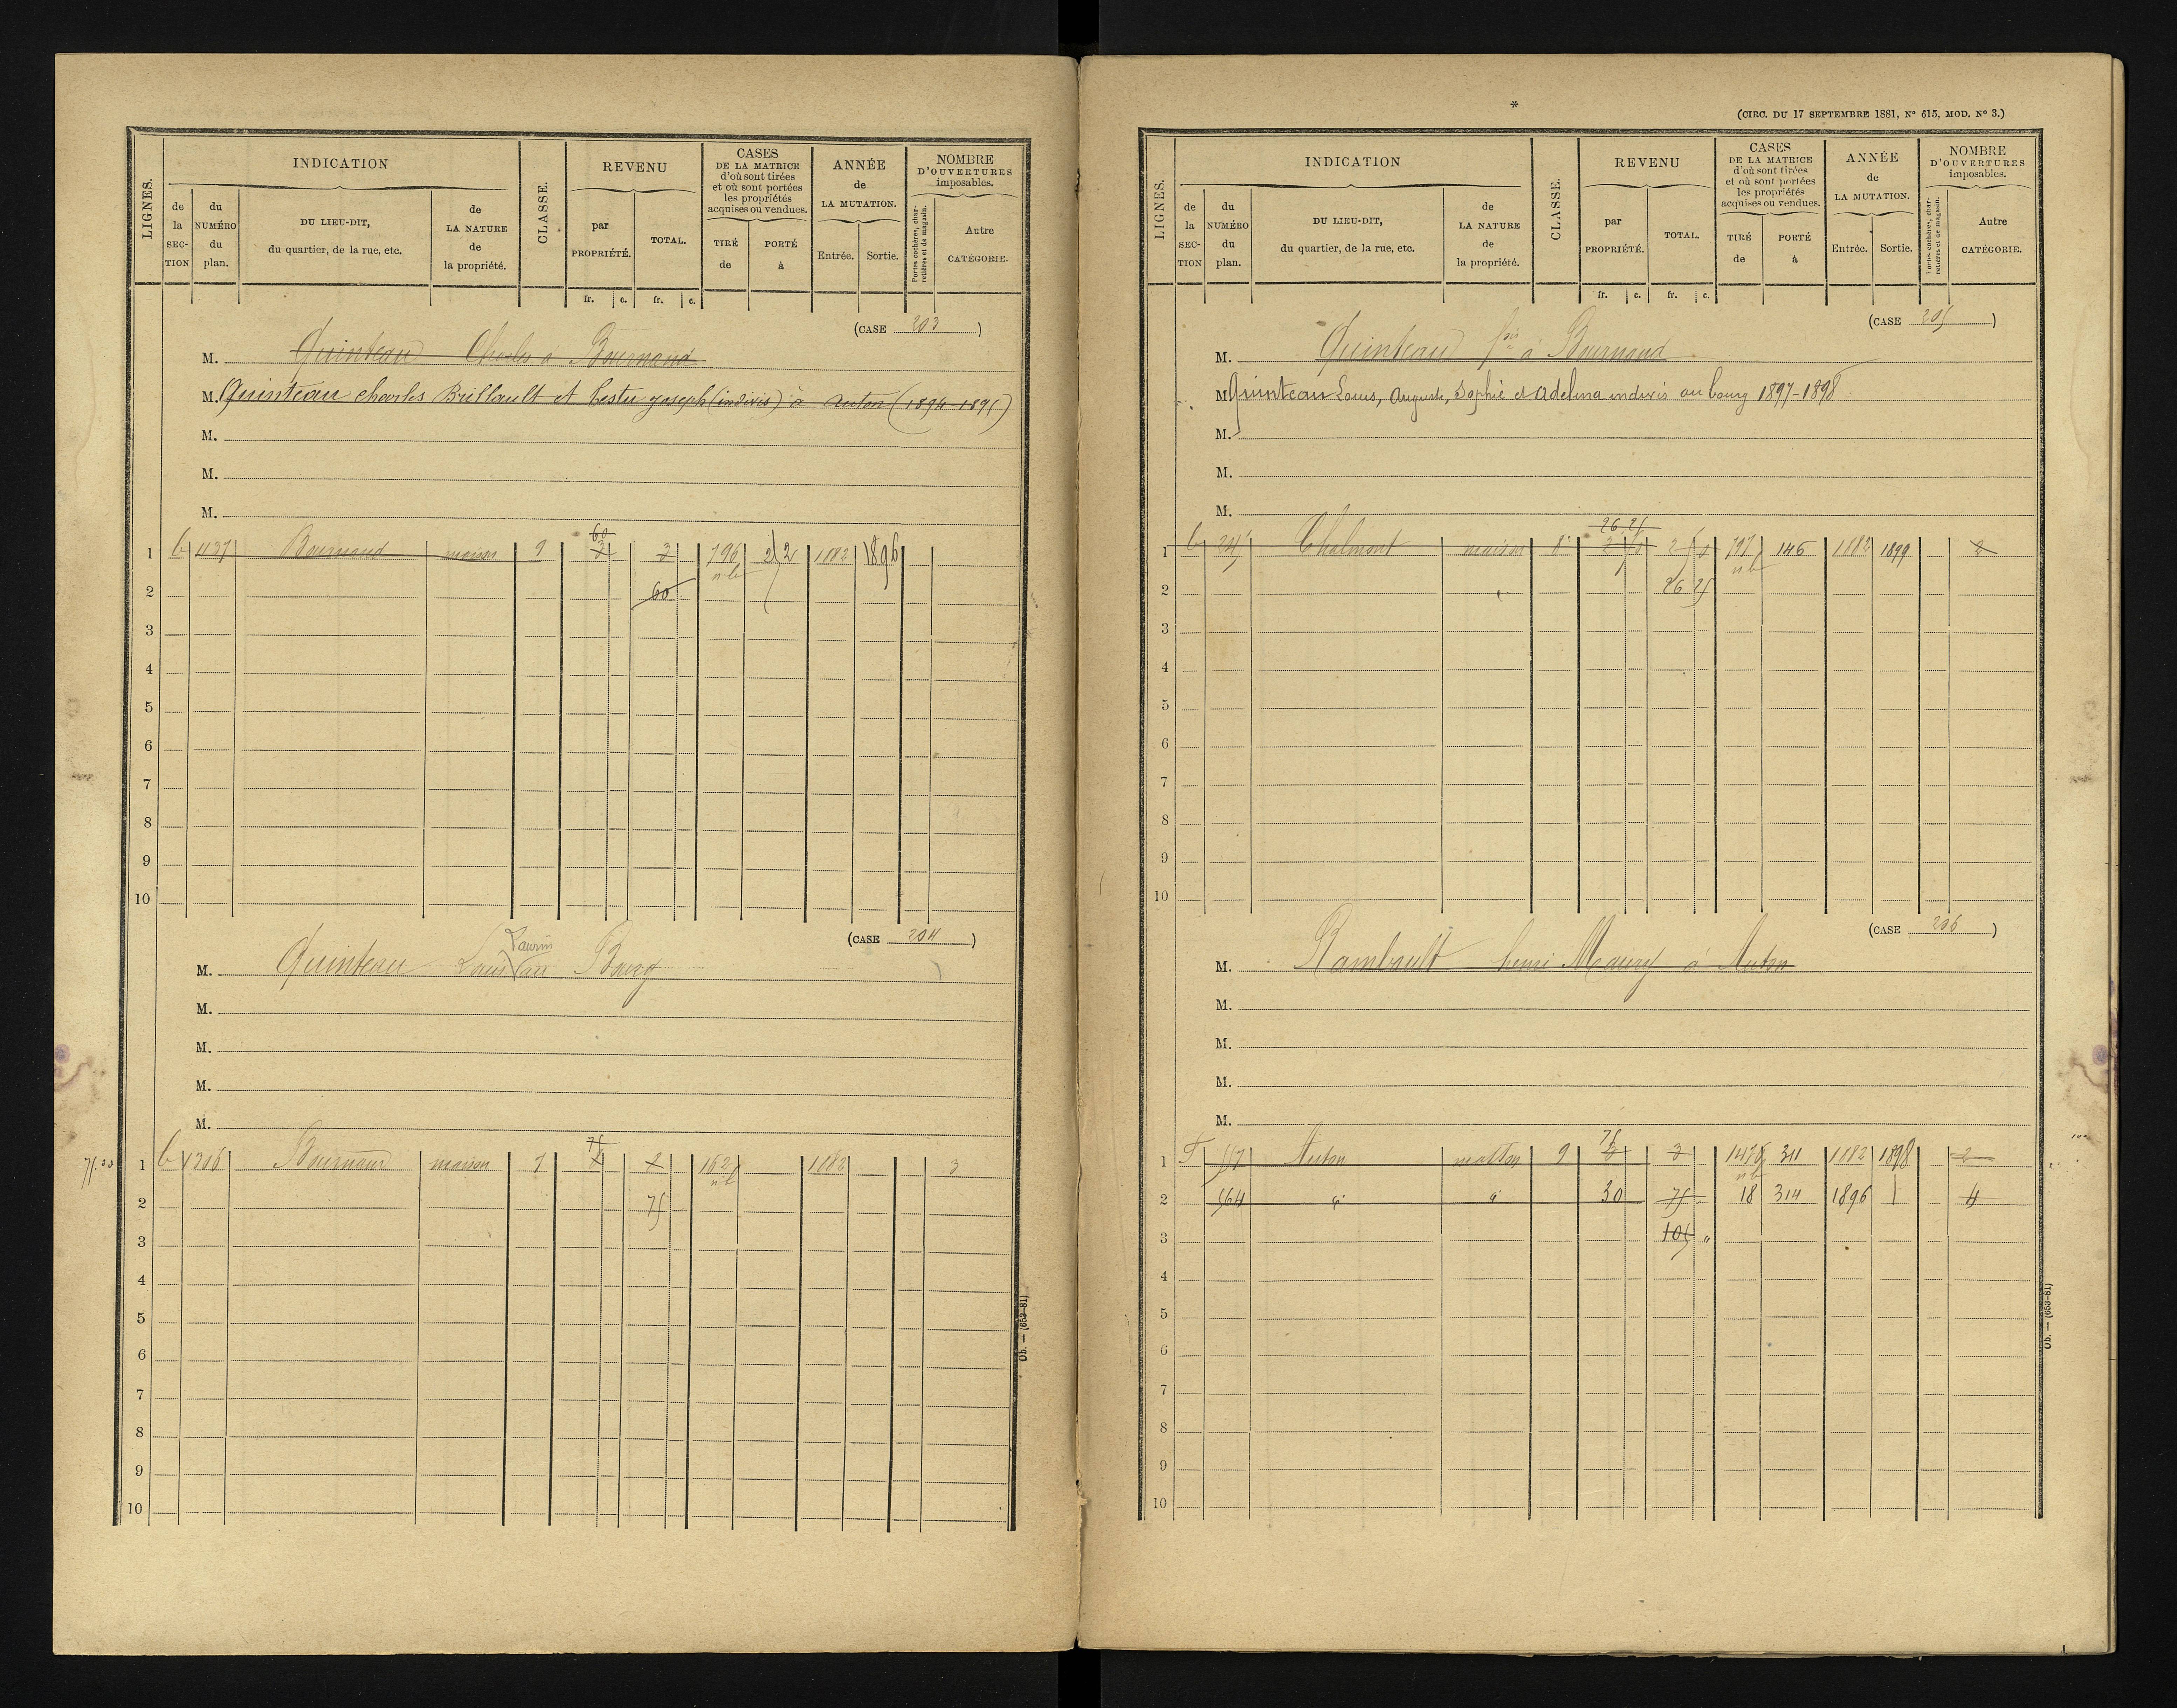 LIGNES.
INDICATION
de la SEC-TION
du NUMÉRO du plan.
DU LIEU-DIT, du quartier, de la rue, etc.
de LA NATURE de la propriété.
CLASSE.
REVENU
par PROPRIÉTÉ.
TOTAL.
fr. c. fr. c.
CASES DE LA MATRICE d'où sont tirées et où sont portées les propriétés acquises ou vendues.
TIRÉ de
PORTÉ à
ANNÉE de LA MUTATION.
Entrée. Sortie.
NOMBRE D'OUVERTURES imposables.
Portes cochères, charretières et de magasin.
Autre CATÉGORIE.
(CASE 203)
M. Quinteau Charles à Bournand
M. Quinteau charles Brillault et Lestu joseph (indivis) à Anton (1894-1895)
M.
M.
M.
60
1 437 Bournand maison 9 3 3 796 212 1882 1896
nb
2 60
3
4
5
6
7
8
9
10
(CASE 204)
Laurin
M. Quinteau Louis au Bourg
M.
M.
M.
M.
75
75.00 1 1306 Bournand maison 9 2 162 1882 3
nb
2 75
3
4
5
6
7
8
9
10
Ob. — (653-81)
*
(CIRC. DU 17 SEPTEMBRE 1881, N° 615, MOD. N° 3.)
LIGNES.
INDICATION
de la SEC-TION
du NUMÉRO du plan.
DU LIEU-DIT, du quartier, de la rue, etc.
de LA NATURE de la propriété.
CLASSE.
REVENU
par PROPRIÉTÉ.
TOTAL.
fr. c. fr. c.
CASES DE LA MATRICE d'où sont tirées et où sont portées les propriétés acquises ou vendues.
TIRÉ de
PORTÉ à
ANNÉE de LA MUTATION.
Entrée. Sortie.
NOMBRE D'OUVERTURES imposables.
Portes cochères, charretières et de magasin.
Autre CATÉGORIE.
(CASE 205)
M. Quinteau à Bournand
M. Quinteau Louis, Auguste, Sophie et Adelina indivis au bourg 1897-1898
M.
M.
M.
26 25
1 245 Chalmont maison 8 797 146 1882 1899 2
nb
2 26 25
3
4
5
6
7
8
9
10
(CASE 206)
M. Rambault henri Maury à Anton
M.
M.
M.
M.
75
1 F 557 Anton maison 9 3 3 1478 311 1882 1898 2
nb
2 564 " " 30 75 18 314 1896 4
3 105 "
4
5
6
7
8
9
10
Ob. — (653-81)